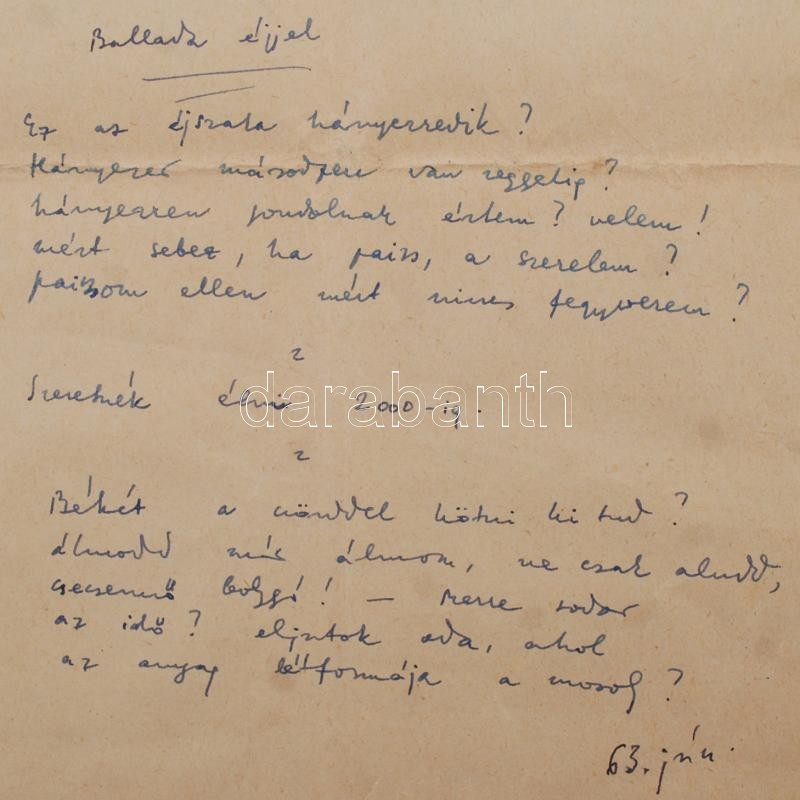 Ballada éjjel
Ez az éjszaka hányezredik?
Hányezer másodperc van reggelig?
hányezren gondolnak értem? velem!
mért sebez, ha paizs, a szerelem?
paizsom ellen mért nincs fegyverem?
Szeretnék élni 2000-ig.
darabanth
Békét a csönddel kötni ki tud?
álmodd már álmom, ne csak aludd,
csecsemő bolygó! – merre sodor
az idő? eljutok oda, ahol
az anyag létformája a mosoly?
63. jún.